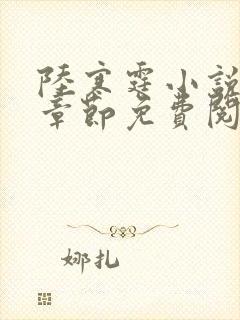 陸寒霆小說
章節免費閱
娜扎